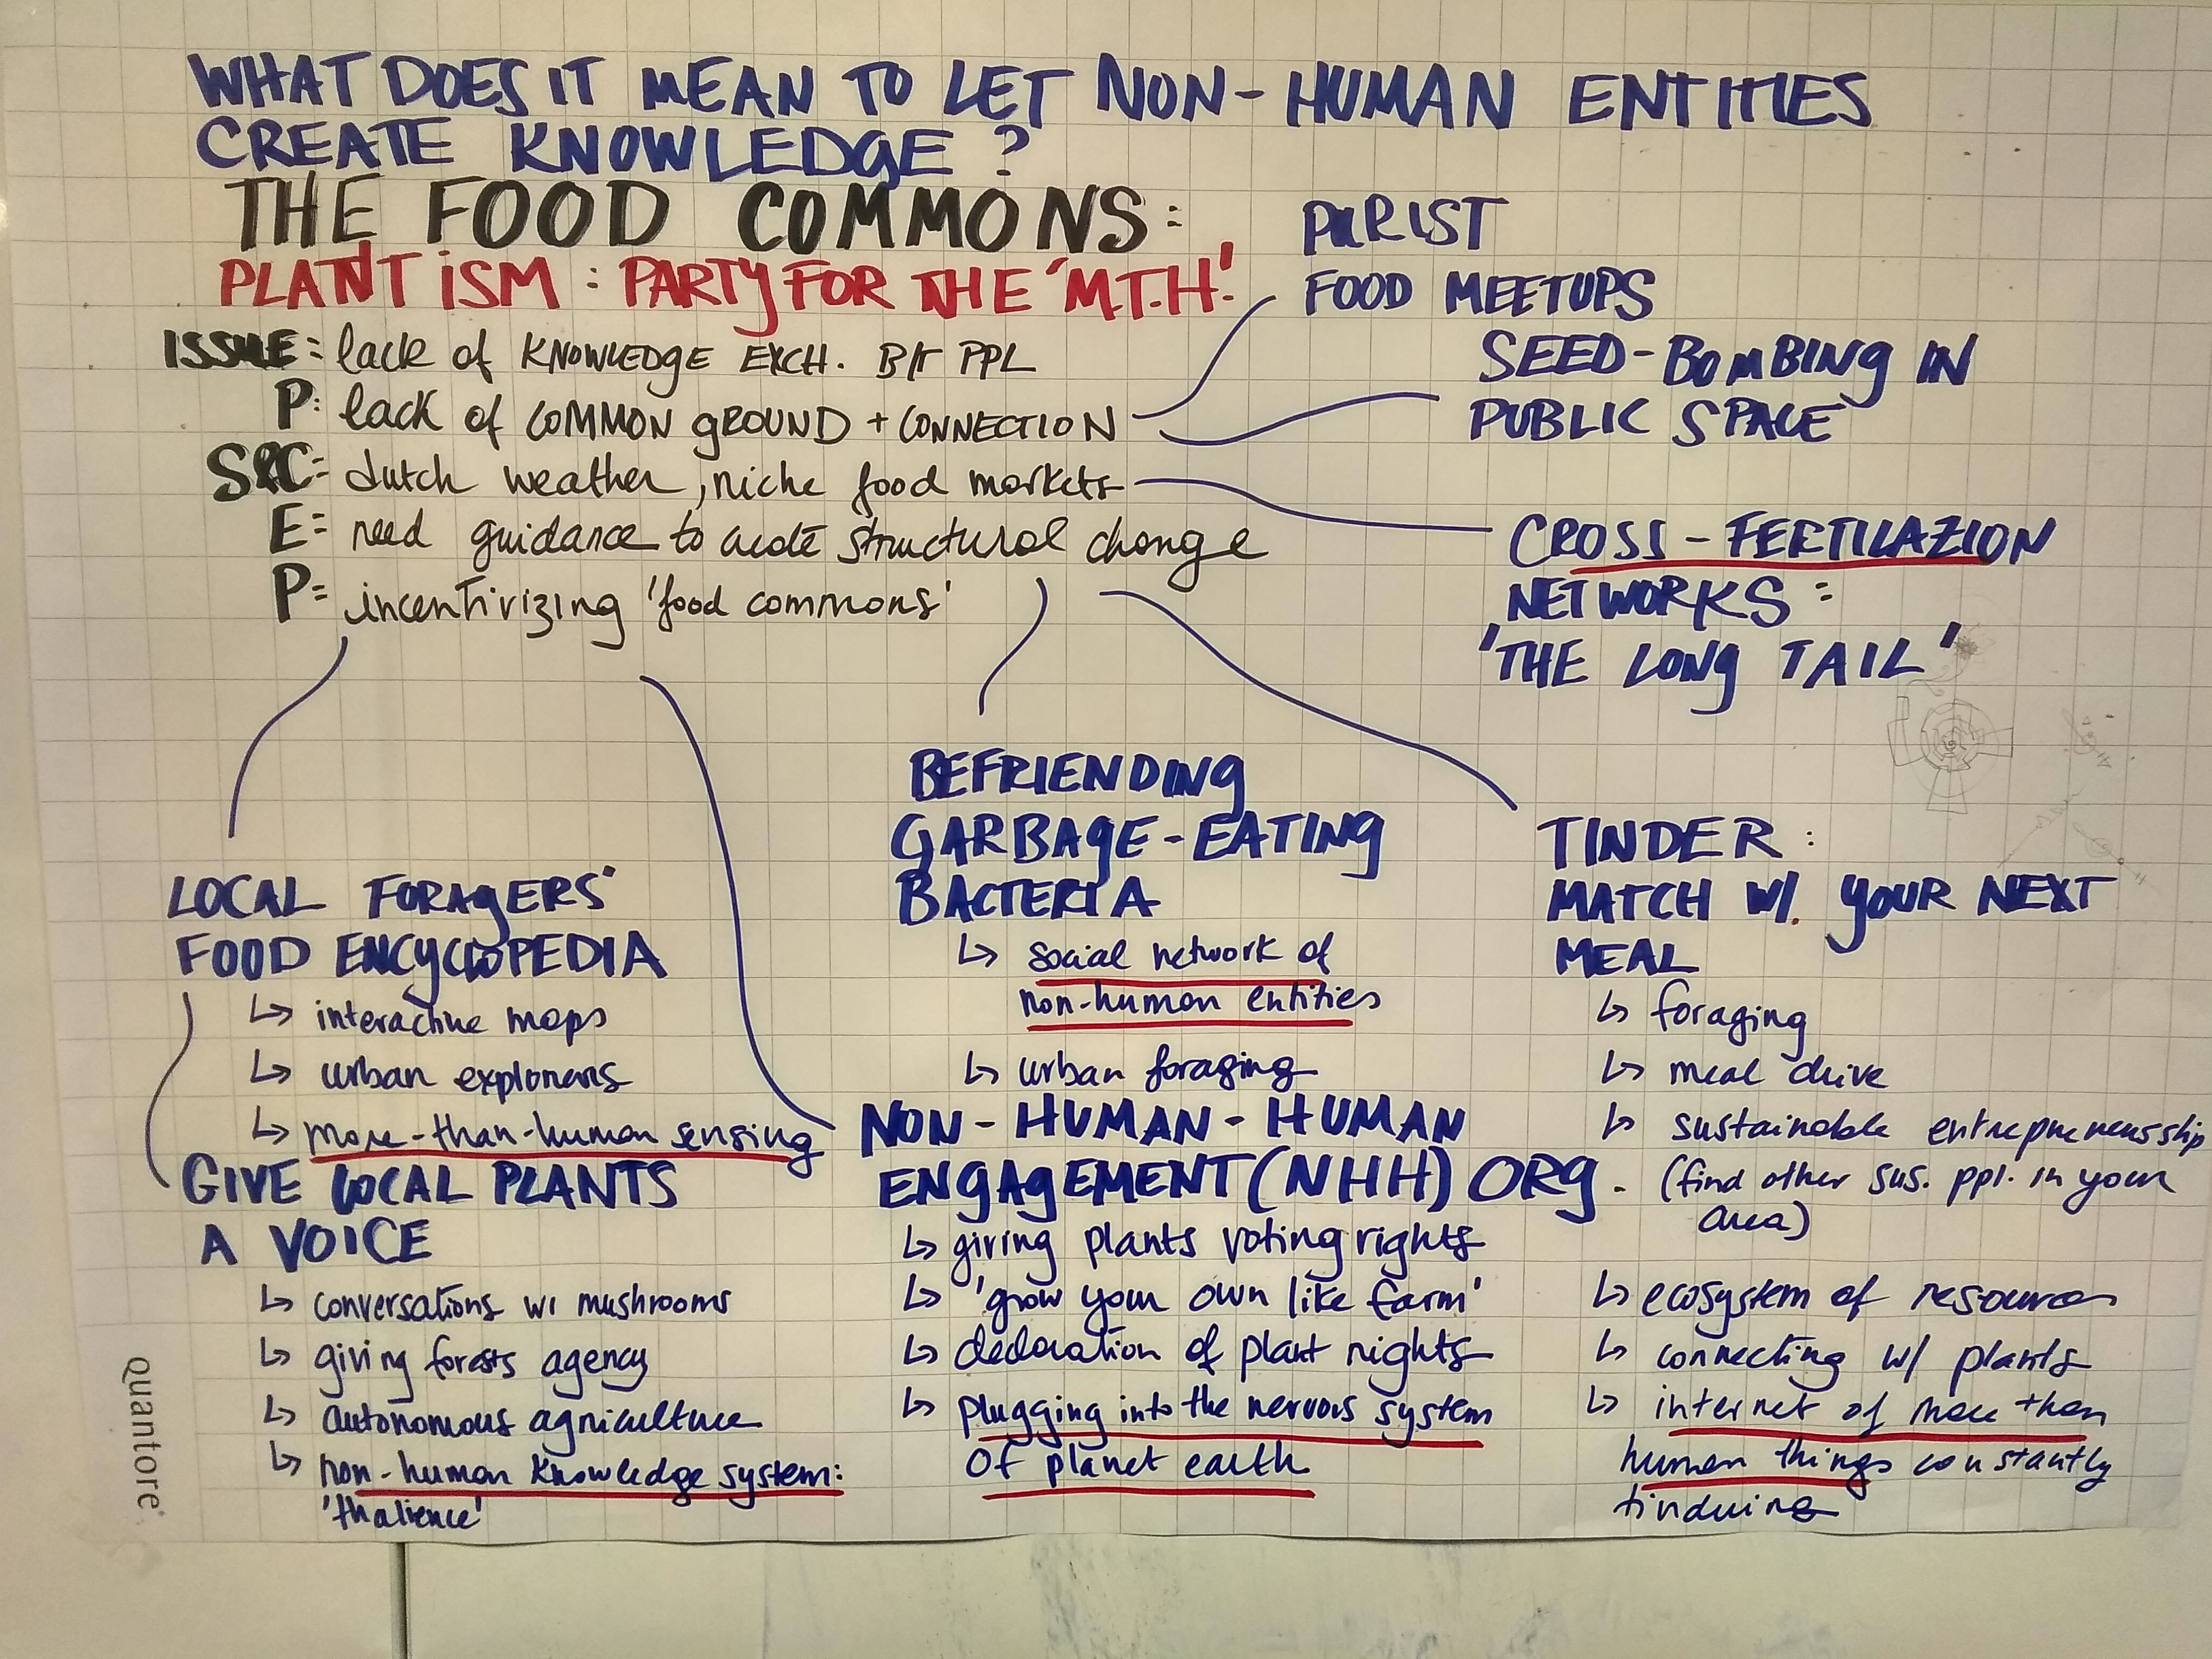 WHAT DOES IT MEAN TO LET NON-HUMAN ENTITIES
CREATE KNOWLEDGE?
THE FOOD COMMONS:
PLANTISM: PARTY FOR THE 'M.T.H.'
ISSUE: lack of KNOWLEDGE EXCH. B/T PPL
P: lack of COMMON GROUND + CONNECTION
S&C: dutch weather, niche food markets
E: need guidance to create structural change
P: incentivizing 'food commons'
PURIST
FOOD MEETUPS
SEED-BOMBING IN
PUBLIC SPACE
CROSS-FERTILAZION
NETWORKS:
'THE LONG TAIL'
LOCAL FORAGERS'
FOOD ENCYCLOPEDIA
↳ interactive maps
↳ urban explorers
↳ more-than-human sensing
GIVE LOCAL PLANTS
A VOICE
↳ conversations w/ mushrooms
↳ giving forests agency
↳ autonomous agriculture
↳ non-human knowledge system:
'thalience'
BEFRIENDING
GARBAGE-EATING
BACTERIA
↳ social network of
non-human entities
↳ urban foraging
NON-HUMAN-HUMAN
ENGAGEMENT (NHH) ORG.
↳ giving plants voting rights
↳ 'grow your own like farm'
↳ declaration of plant rights
↳ plugging into the nervous system
of planet earth
TINDER:
MATCH W/. YOUR NEXT
MEAL
↳ foraging
↳ meal drive
↳ sustainable entrepreneurship
(find other sus. ppl. in your
area)
↳ ecosystem of resources
↳ connecting w/ plants
↳ internet of more than
human things constantly
tindering
quantore